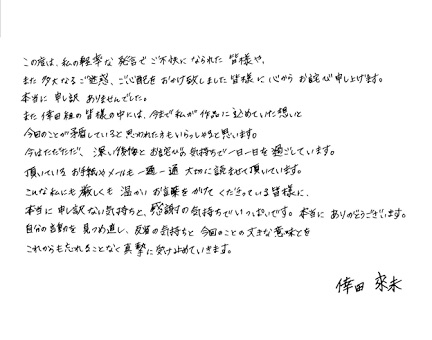 この度は、私の軽率な発言でご不快になられた皆様や、
また多大なるご迷惑、ご心配をおかけ致しました皆様に心からお詫び申し上げます。
本当に申し訳ありませんでした。
また倖田組の皆様の中には、今まで私が作品に込めていた想いと
今回のことが矛盾していると思われた方もいらっしゃると思います。
今はただただ、深い後悔とお詫びの気持ちで一日一日を過ごしています。
頂いているお手紙やメールも一通一通大切に読ませて頂いています。
こんな私にも厳しくも温かいお言葉をかけてくださっている皆様に、
本当に申し訳ない気持ちと、感謝の気持ちでいっぱいです。本当にありがとうございます。
自分の言動を見つめ直し、反省の気持ちと今回のことの大きな意味とを
これからも忘れることなく真摯に受け止めていきます。
倖田 來未